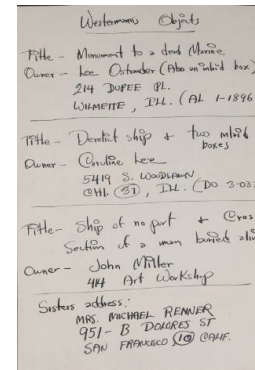 Westermanns Objects
Title - Monument to a dead Marine
Owner - Lee Ostrander (Also an inlaid box)
214 DUPEE PL.
WILMETTE, ILL. (AL 1-1896
Title - Derelict ship + two inlaid
boxes
Owner - Caroline Lee
5419 S. WOODLAWN
CHI. (37), ILL. (DO 3-03
Title - Ship of no port + Cros
Section of a man buried aliv
Owner - John Miller
414 Art Workshop
Sisters address:
MRS. MICHAEL RENNER
951-B DOLORES ST
SAN FRANCISCO (10) CALIF.